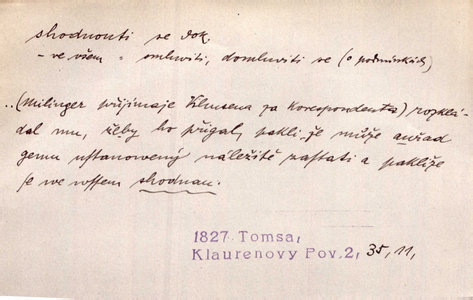 shodnouti se dok.
- ve všem = smluviti, domluviti se (o podmínkách)
..(Milinger přijimaje Klausena za korespondenta) rozklá-
dal mu, žeby ho přigal, pakli že může auřad
gemu ustanowený náležitě zastati a pakliže
se we wssem shodnau.
1827 Tomsa,
Klaurenovy Pov.2, 35, 11,